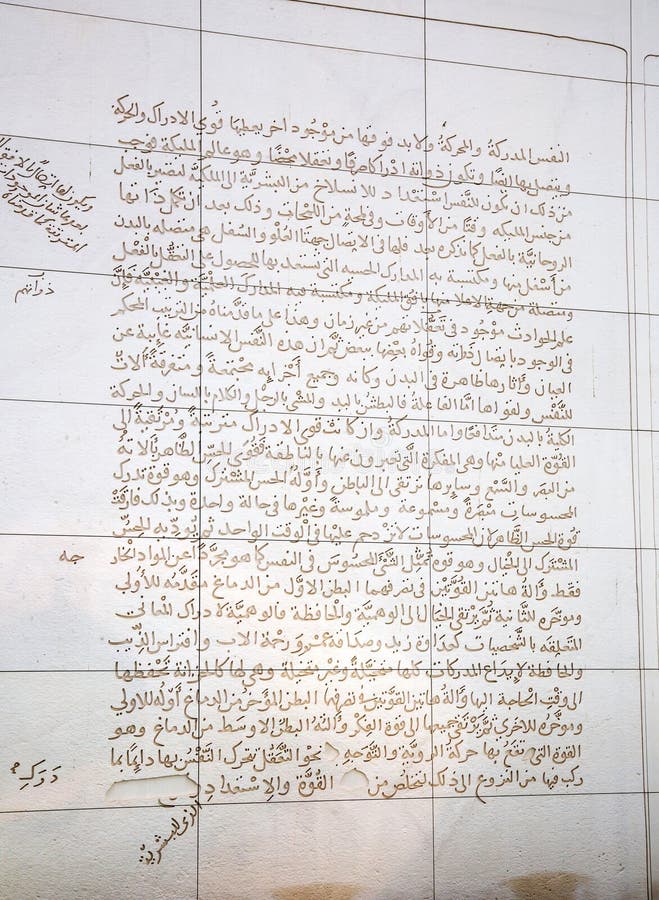 النفس المدركة والمحركة ولا بد فوقها من موجود اخر يعطيها قوى الادراك والحركة
ويتصل بها ايضًا ويكون ذواته ادراكا صرفا وتعقلا محضًا وهو عالم الملايكة فوجب
من ذلك ان يكون للنَّفس اسْتعداد للانسلاخ من البشرية الى الملكية لتصير بالفعل
من جنس الملايكه وقتًا من الاوقات وفي لمحة من اللمحات وذلك بعد ان تكمل ذاتها
الروحانية بالفعل كما نذكره بعد فلها في الاتصال جهتا العُلو والسُّفل هي متصله بالبدن
من اسفل منها ومكتسبة به المدارك الحسيه التي تستعد بها للحصول على التعقل بالفعل
ومتصلة من جهة الاعلا منها بافق الملايكة ومكتسبة به المدارك العلمية والغيبية فان
علم الحوادث موجود في تعقلاتهم من غير زمان وهذا على ما قدمناه من الترتيب المحكم
في الوجود باتصال ذواته وقواه بعضها ببعض ثم ان هذه النَّفس الانسانيه غايبة عن
العيان وآثارها ظاهرة في البدن وكانه وجميع اجزايه مجتمعة ومتفرقة آلات
للنَّفس ولقواها امَّا الفاعلة فالبطش باليد والمشي بالرجل والكلام باللسان والحركة
الكلية بالبدن متدافعًا واما المدركة وان كانت قوى الادراك مترتبة ومرتقية الى
القوة العليا منها وهي المفكرة التي يعبرون عنها بالناطقة فقوى الحس الظاهر بآلاته
من البصر والسمع وسايرها ترتقي الى الباطن وأوله الحس المشترك وهو قوة تدرك
المحسوسات مبصرة ومسموعة وملموسة وغيرها في حالة واحدة وبذلك فارقت
قوة الحس الظاهر لان المحسوسات لا تزدحم عليها في الوقت الواحد ثم يؤديه الحس
المشترك الى الخيال وهو قوه تمثل الشَّيْ المحسوس في النفس كما هو مجردًا عن المواد الخارجه
فقط وآلة هاتين القوتين في تصرفهما البطن الاول من الدماغ مقدمه للأولى
وموخره للثانية ثم يرتقى الخيال الى الوهمية والحافظة فالوهمية لادراك المعاني
المتعلقه بالشخصيات كعداوة زيد وصداقة عمرو ورحمة الاب وافتراس الذيب
والحافظة لايداع المدركات كلها متخيلة وغير متخيلة وهي لها كالخزانة تحفظها
الى وقت الحاجة اليها وآلة هاتين القوتين في تصرفهما البطن المؤخر من الدماغ أوله للاولى
وموخره للاخرى ثم ترتقي جميعها الى قوة الفكر وآلته البطن الاوسط من الدماغ وهو
القوة التي تقع بها حركة الروية والتوجه نحو التعقل تتحرك النَّفس بها دايمًا بما
ركب فيها من النزوع الى ذلك لتخلص من القوة والاستعداد
الذي للبشرية
ذواتهم
جه
دَرَك